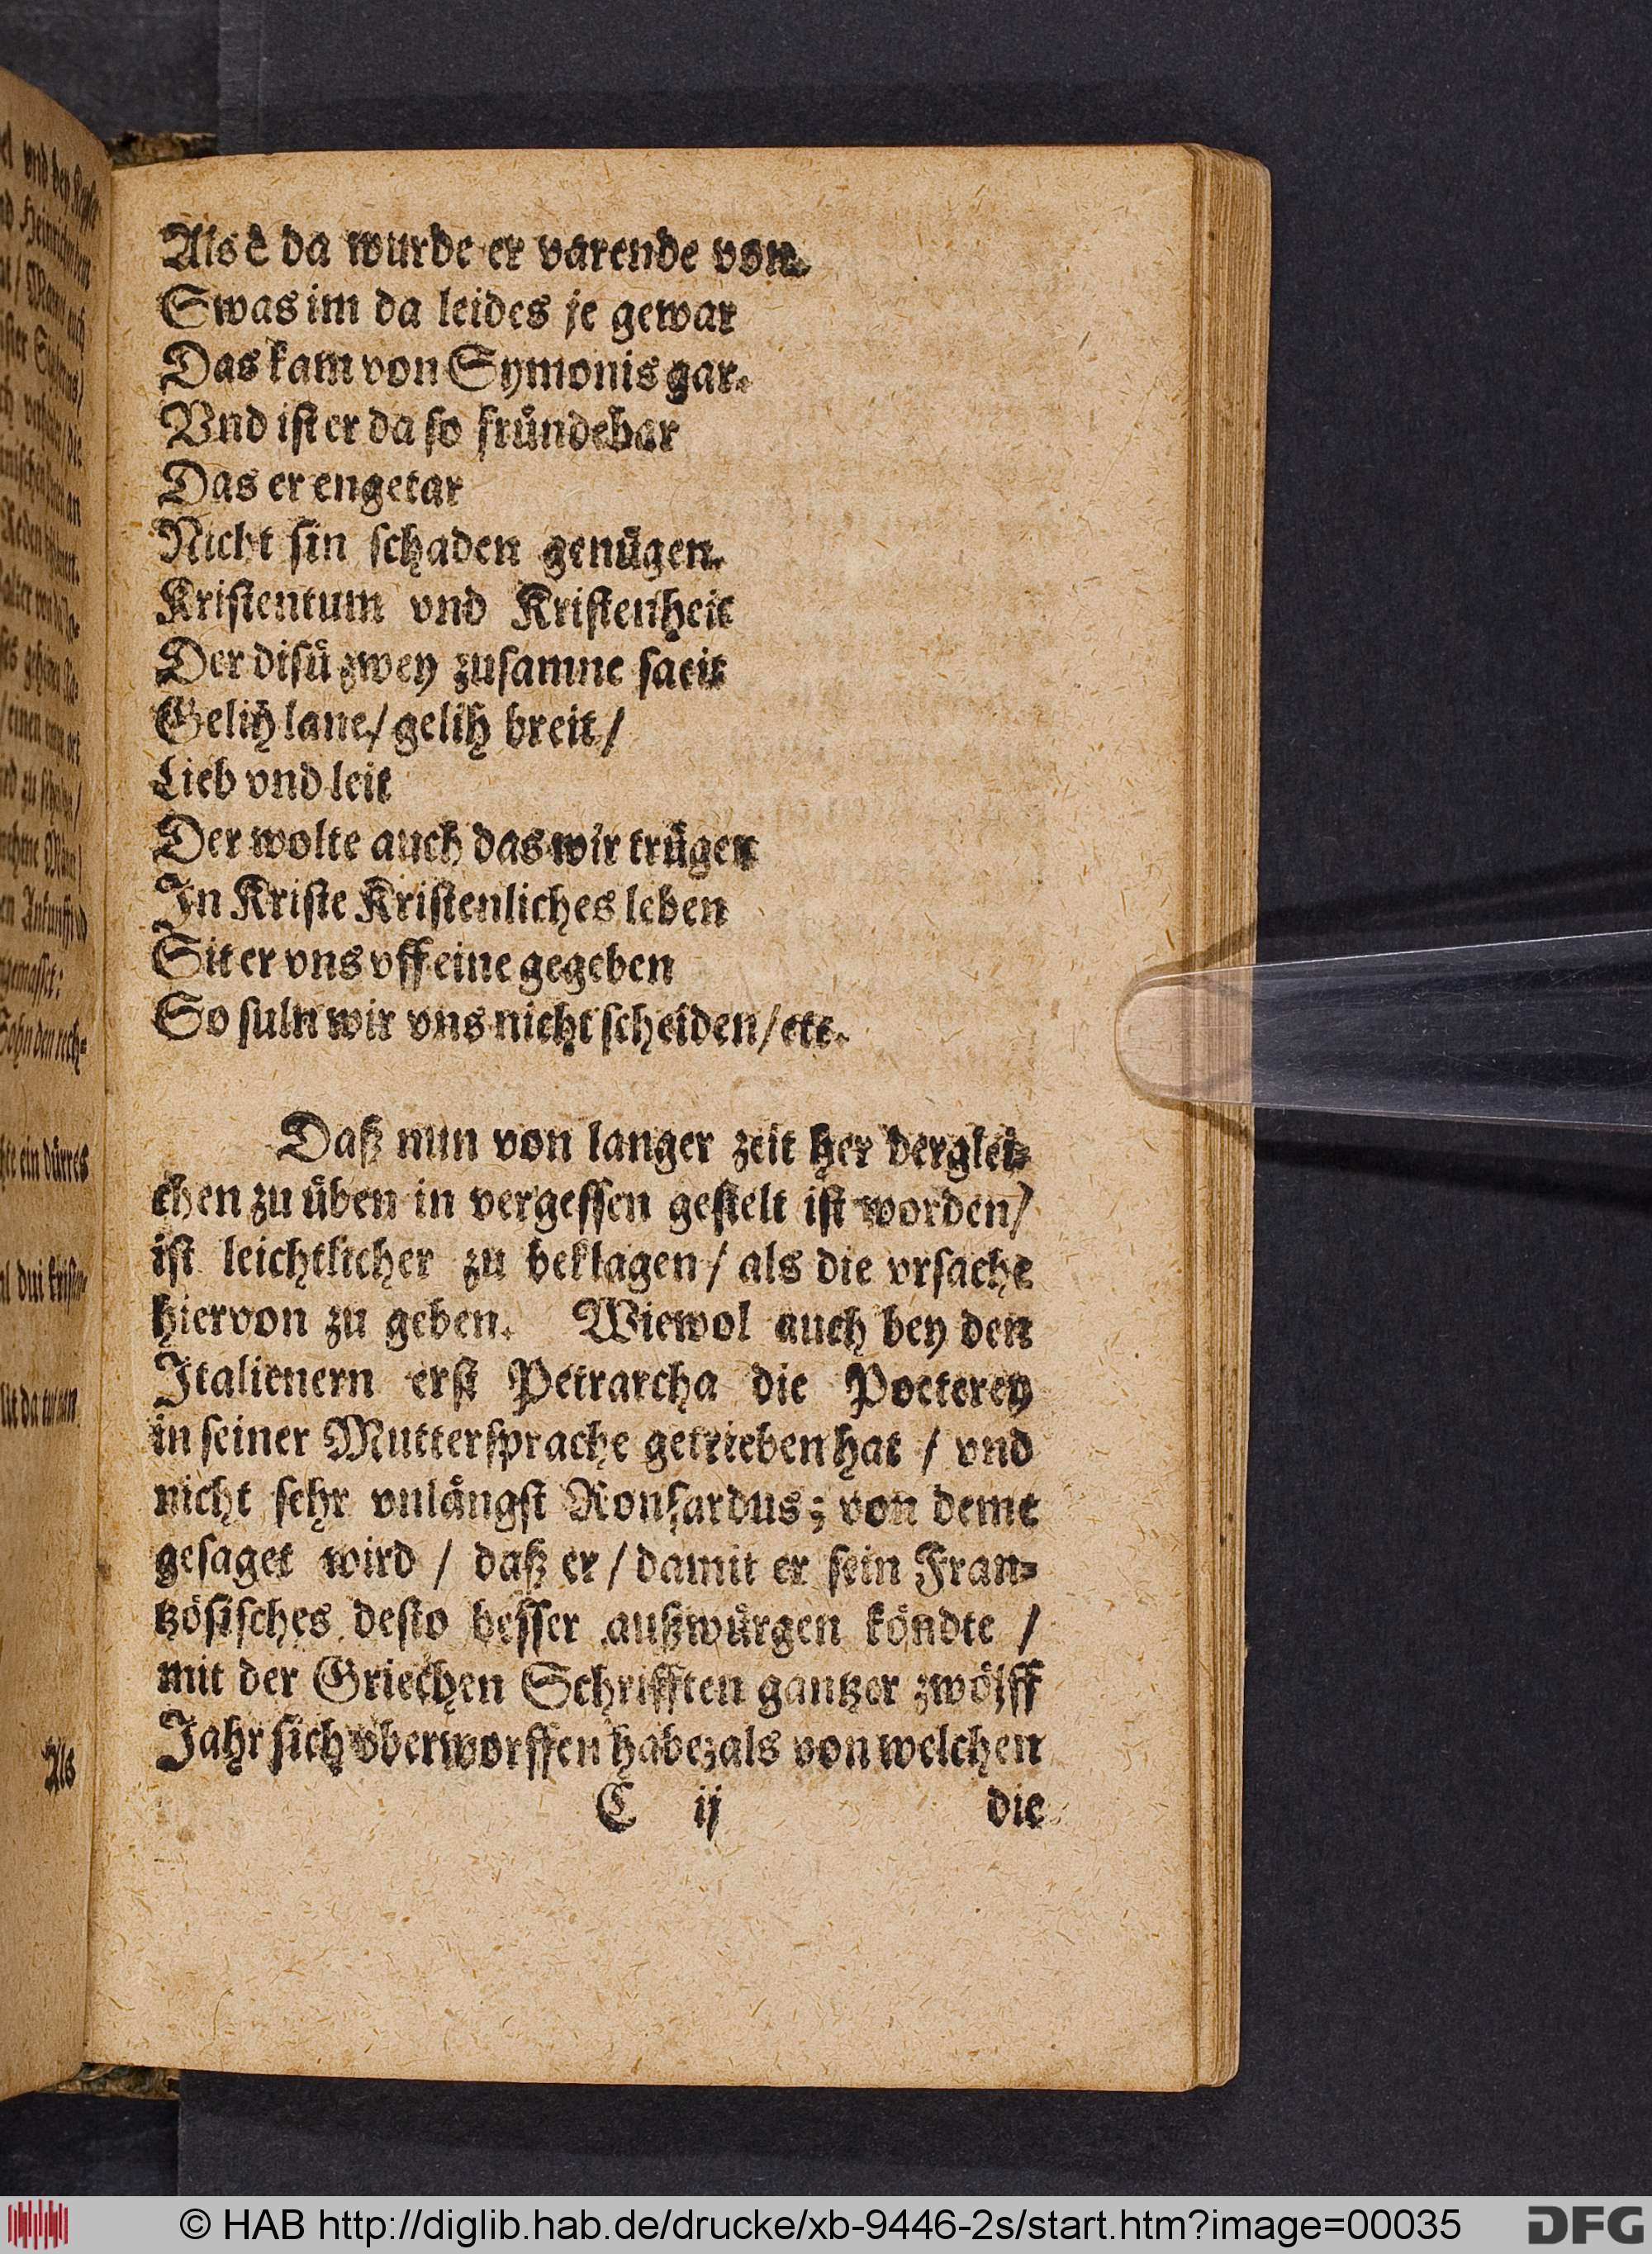 Als è da wurde er varende von.
Swas im da leides je gewar
Das kam von Symonis gar.
Vnd ist er da so fründebar
Das er engetar
Nicht sin schaden genügen.
Kristentum vnd Kristenheit
Der disü zwey zusamne saeit
Gelih lane/ gelih breit/
Lieb vnd leit
Der wolte auch das wir trügen
In Kriste Kristenliches leben
Sit er vns vff eine gegeben
So suln wir vns nicht scheiden/ etc.
Daß nun von langer zeit her derglei-
chen zu üben in vergessen gestelt ist worden/
ist leichtlicher zu beklagen/ als die vrsache
hiervon zu geben. Wiewol auch bey den
Italienern erst Petrarcha die Poeterey
in seiner Muttersprache getrieben hat / vnd
nicht sehr vnlängst Ronsardus; von deme
gesaget wird / daß er / damit er sein Fran-
tzösisches desto besser außwürgen köndte /
mit der Griechen Schrifften gantzer zwölff
Jahr sich vberworffen habe; als von welchen
C ij die
Als
© HAB http://diglib.hab.de/drucke/xb-9446-2s/start.htm?image=00035
DFG